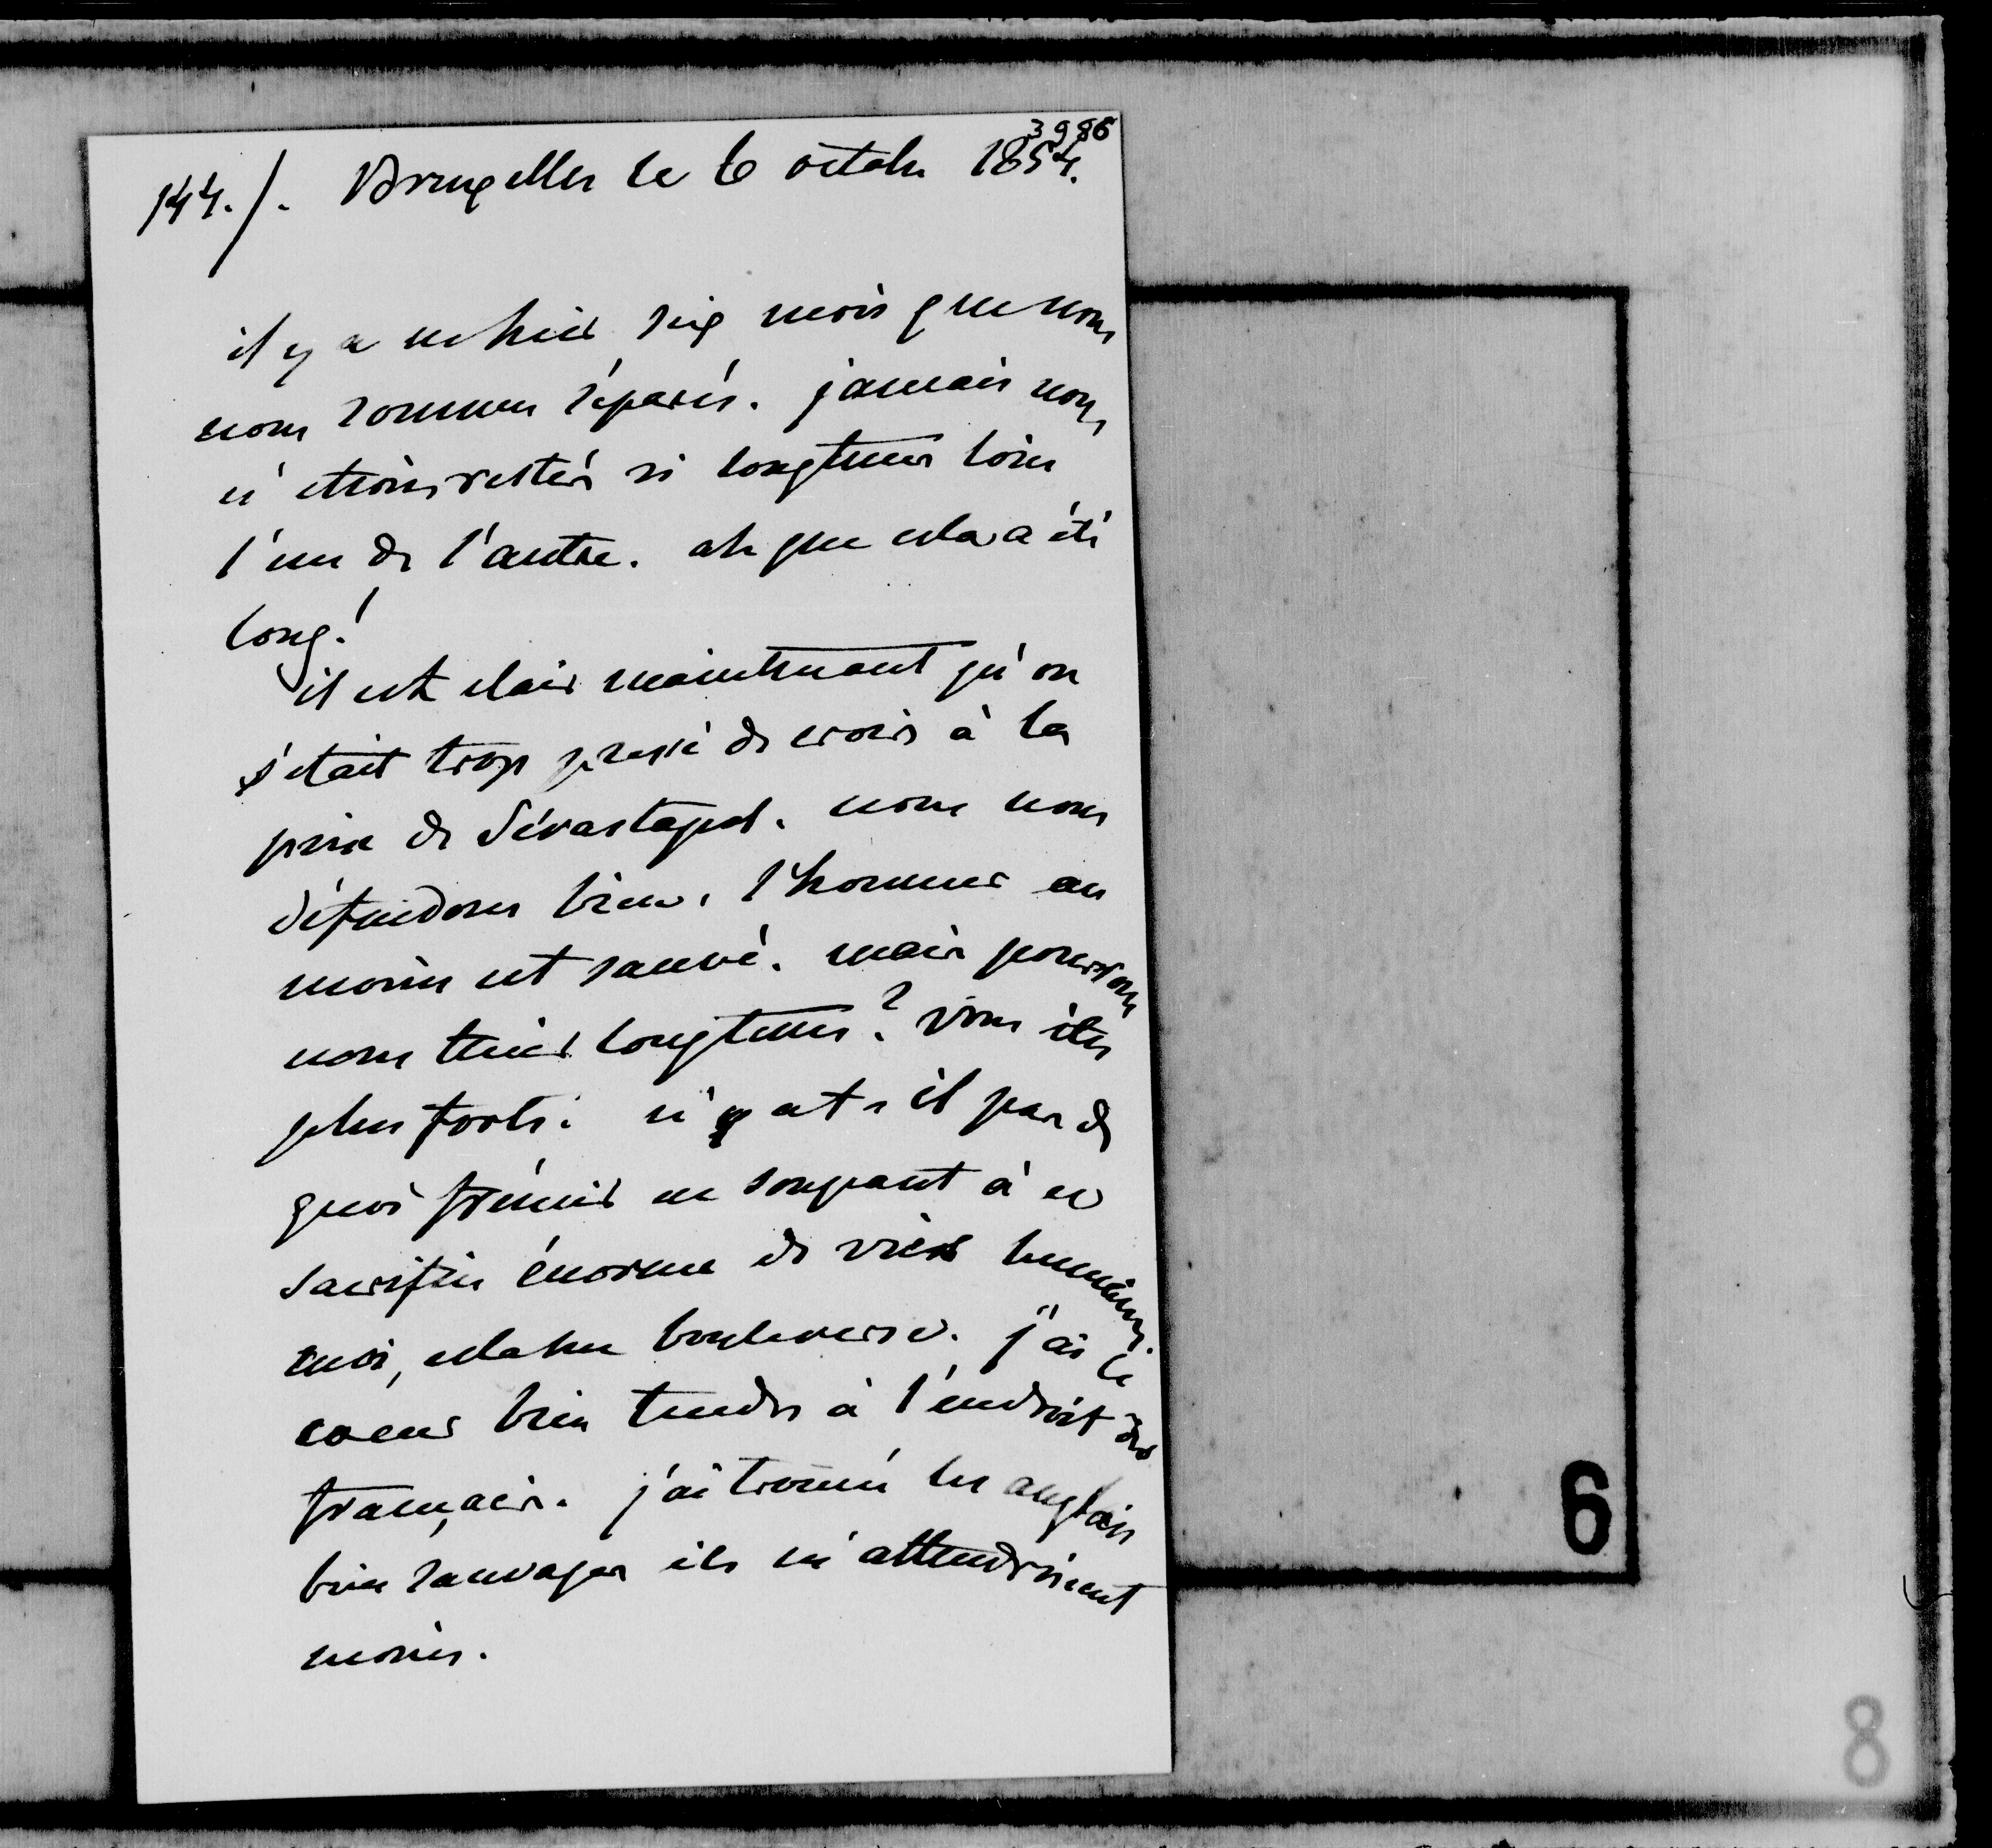 3986
144./. Bruxelles le 6 octobre 1854.
il y a eu hier six mois que nous
nous sommes séparés. jamais nous
n'etions restés si longtems loin
l'un de l'autre. ah que cela a été
long!
il est clair maintenant qu'on
s'etait trop pressé de croire à la
prise de Sévastopol. nous nous
défendons bien. l'honneur au
moins est sauvé. mais pourrons
nous tenir longtems? vous êtes
plus forts. n'y at-il pas de
quoi frémir en songeant à ce
sacrifice énorme de vies humaines.
moi, cela me bouleverse. j'ai le
coeur bien tendre à l'endroit des
français. j'ai trouvé les anglais
bien sauvages ils m'attendrissent
moins.
6
8